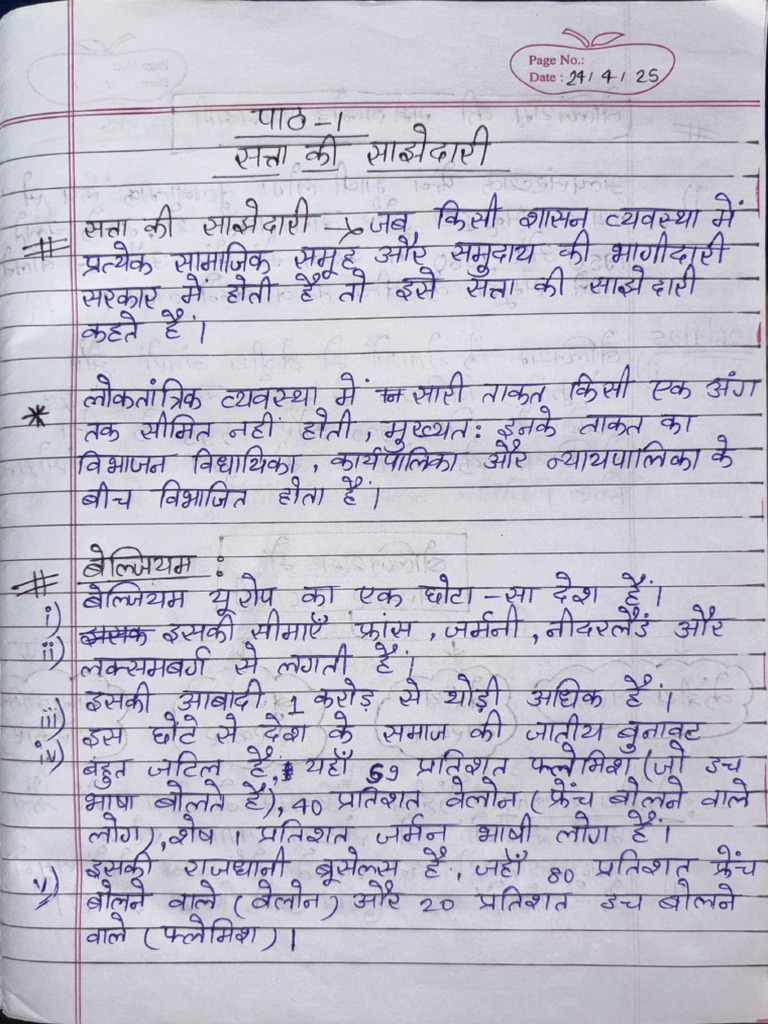 Page No.:
Date : 24/4/25
पाठ-1
सत्ता की साझेदारी
# सत्ता की साझेदारी → जब किसी शासन व्यवस्था में
प्रत्येक सामाजिक समूह और समुदाय की भागीदारी
सरकार में होती है तो इसे सत्ता की साझेदारी
कहते हैं।
* लोकतांत्रिक व्यवस्था में सारी ताकत किसी एक अंग
तक सीमित नहीं होती, मुख्यत: इनके ताकत का
विभाजन विधायिका, कार्यपालिका और न्यायपालिका के
बीच विभाजित होता हैं।
# बेल्जियम :
i) बेल्जियम यूरोप का एक छोटा-सा देश हैं।
ii) इसकी सीमाएँ फ्रांस, जर्मनी, नीदरलैंड और
लक्समबर्ग से लगती हैं।
iii) इसकी आबादी 1 करोड़ से थोड़ी अधिक हैं।
iv) इस छोटे से देश के समाज की जातीय बुनावट
बहुत जटिल है, यहाँ 59 प्रतिशत फ्लेमिश (जो डच
भाषा बोलते हैं), 40 प्रतिशत वेलोन (फ्रेंच बोलने वाले
लोग), शेष 1 प्रतिशत जर्मन भाषी लोग हैं।
v) इसकी राजधानी ब्रूसेल्स है, जहाँ 80 प्रतिशत फ्रेंच
बोलने वाले (वेलोन) और 20 प्रतिशत डच बोलने
वाले (फ्लेमिश)।